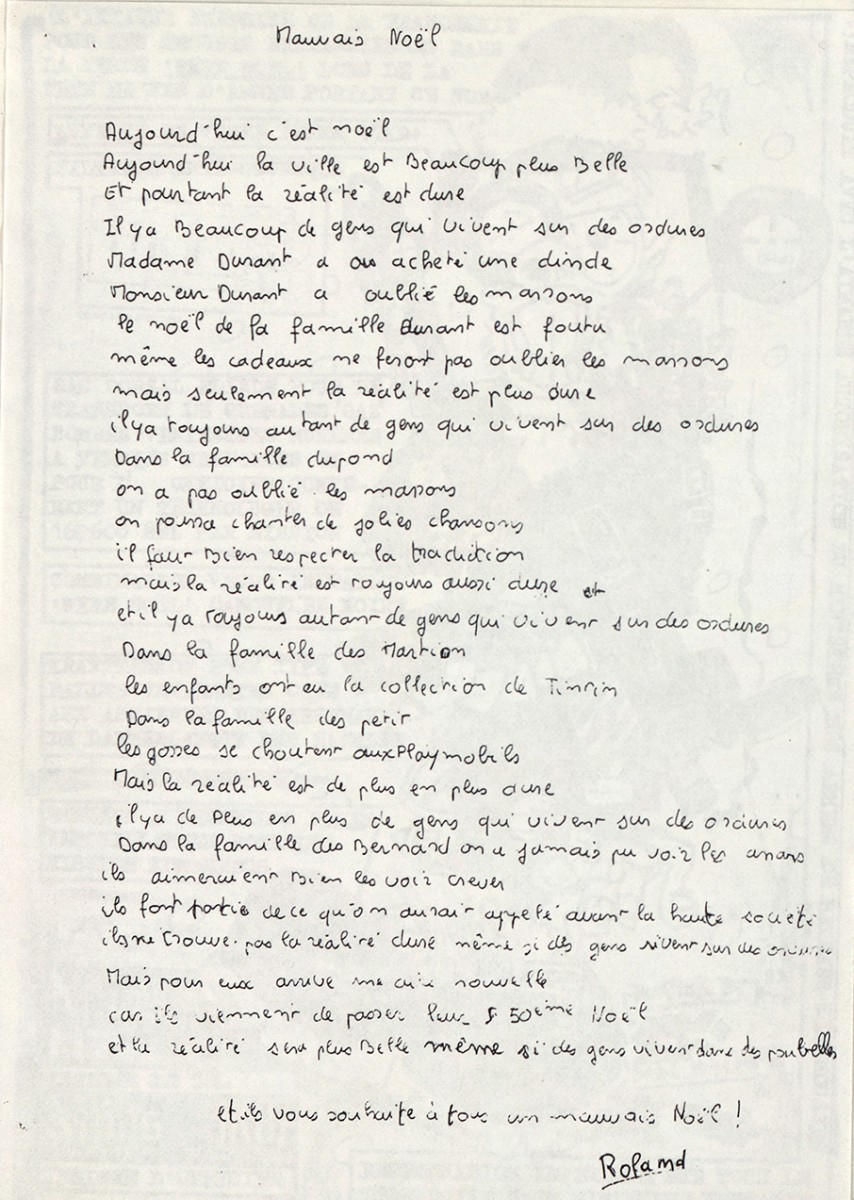 Mauvais Noël
Aujourd'hui c'est noël
Aujourd'hui la ville est Beaucoup plus Belle
Et pourtant la réalité est dure
Il ya Beaucoup de gens qui vivent sur des ordures
Madame Durant a acheté une dinde
Monsieur Durant a oublié les marrons
le noël de la famille Durant est foutu
même les cadeaux ne feront pas oublier les marrons
mais seulement la réalité est plus dure
il ya toujours autant de gens qui vivent sur des ordures
Dans la famille dupond
on a pas oublié les marrons
on pourra chanter de jolies chansons
il faut Bien respecter la tradition
mais la réalité est toujours aussi dure et
et il ya toujours autant de gens qui vivent sur des ordures
Dans la famille des Martion
les enfants ont eu la collection de Tintin
Dans la famille des petit
les gosses se choutent aux Playmobils
Mais la réalité est de plus en plus dure
il ya de Plus en plus de gens qui vivent sur des ordures
Dans la famille des Bernard on a jamais pu voir les anars
ils aimeraient Bien les voir crever
ils font partie de ce qu'on aurait appelé avant la haute société
ils ne trouve pas la réalité dure même si des gens vivent sur des ordures
Mais pour eux arrive nouvelle
car ils viennent de passer leur 50ème Noël
et la réalité sera plus Belle même si des gens vivent dans des poubelles
et ils vous souhaite à tous un mauvais Noël !
Roland